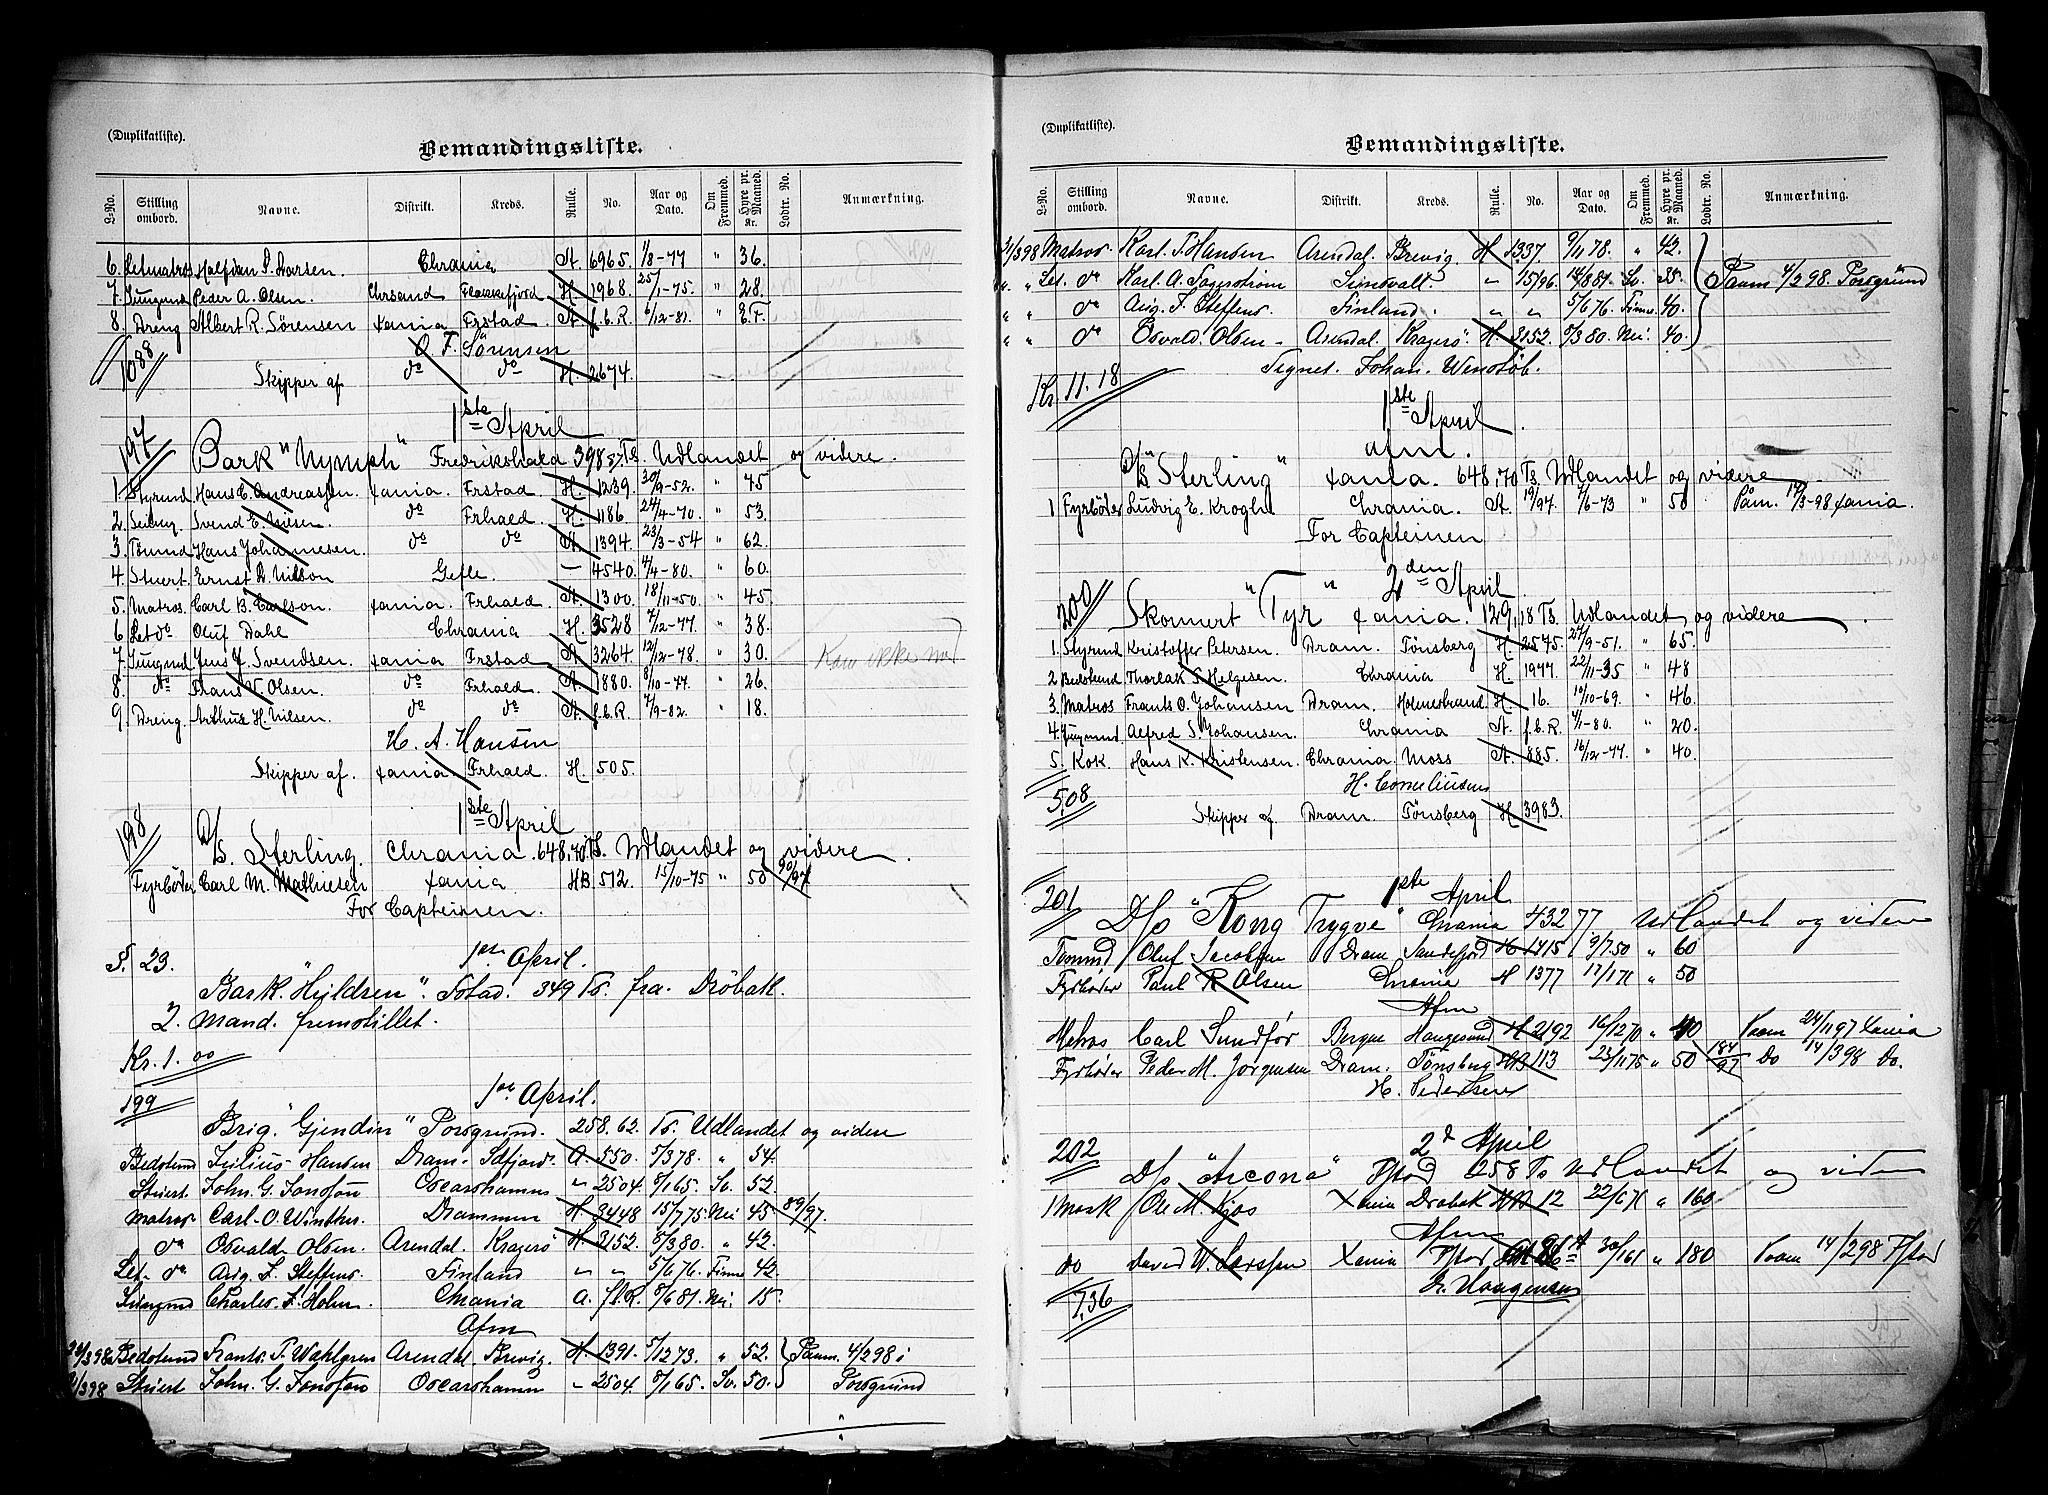 (Duplikatliste).
Bemandingsliste.
L-No. Stilling ombord. Navne. Distrikt. Kreds. Rulle. No. Aar og Dato. Om Fremmed. Hyre pr. Maaned. Kr. Lodtr. No. Anmærkning.
6. Letmatros Halfdan S. Larsen. Chrania A. 6965. 1/8-77 " 36.
7. Jungmd Peder A. Olsen. Chrsand Flekkefjord H. 1968. 25/1-75. " 28.
8. Dreng Albert R. Sörensen Xania Frstad. A. f.b.R. 6/12-81. " E.F.
O. F. Sörensen
1088
Skipper af do do H. 2674.
1ste April
197
Bark "Nymph" Fredrikshald 398,57 Ts. Udlandet og videre.
1. Styrmd Hans E. Andreassen. Xania. Frstad. H. 1239. 30/9-52. " 75
2. Svend E. Nilsen. do Frhald. H. 1186 24/4-70. " 53.
3. Tømmd Hans Johannesen. do do A. 1394. 23/3-54 " 62.
4. Stuert. Ernst R. Nilson Gefle. — 4540. 4/4-80. " 60.
5. Matros. Carl B. Carlson. Xania. Frhald. A. 1300. 18/11-50. " 45.
6 Let do Oluf Dahl Chrania H. 3528 7/12-77. " 38.
7. Jungmd Jens J. Svendsen. Xania Frstad. A. 3264. 12/12-78. " 30. Kan ikke med
8. do Frans V. Olsen. do Frhald. A. 1880. 8/10-77. " 26.
9. Dreng. Arthur H. Nilsen. do do A. f.b.R. 7/9-82. " 18.
H. A. Hansen
Skipper af. Xania. Frhald. H. 505.
1ste April
198
D/S. Sterling. Chrania. 648,70 Ts. Udlandet og videre.
Fyrböter Carl M. Mathiesen Xania HB 512. 15/10-75 " 50 90/97
For Capteinen.
§. 23. 1ste April.
Bark. "Hildren". Fstad. 349 Ts. fra. Dröbak.
2. mand. fremstillet.
Kr. 1. 00
199 1ste April.
Brig. "Gjendin" Porsgrund. 258.62. Ts. Udlandet og videre
Bedstmd Julius Hansen Dram. Sdfjord. A. 550. 5/378. " 54.
Stuert. John. G. Jonsson Oscarshamn " 2504. 8/165. Sv. 52.
Matros Carl. O. Winther. Drammen H. 3448 15/775. Nei 45 89/97.
do Osvald Olsen. Arendal. Kragerö H. 3152. 8/380. " 42.
Let. do Aug. F. Steffens. Finland " " 5/676. Finne 42.
Jungmd Charles. F. Holm. Chrania A. f.b.R. 8/681. Nei. 15.
Afm
24/398 Bedstmd Frants. P. Wahlgren Arendal Brevig. H. 1391. 5/1273. " 52. Paam. 4/298 i
21/398 Stuert John. G. Jonsson Oscarshamn " 2504. 8/165. Sv. 50. Porsgrund
(Duplikatliste).
Bemandingsliste.
L-No. Stilling ombord. Navne. Distrikt. Kreds. Rulle. No. Aar og Dato. Om Fremmed. Hyre pr. Maaned. Kr. Lodtr. No. Anmærkning.
21/398 Matros Karl. P. Hansen Arendal. Brevig. H. 1337. 9/1178. " 42.
" " Let. do Karl. A. Fagerström Sundsvall. " 15/96. 14/881. Sv. 35. Paam 4/298. Porsgrund
" " do Aug. F. Steffens. Finland. " " 5/676. Finne. 40.
" " do Osvald. Olsen Arendal. Kragerö. H. 3152. 8/380. Nei. 40.
Tegnet. Johan.
Kr. 11.18
1ste April
afm.
D/S "Sterling" Xania. 648,70 Ts. Udlandet og videre
1 Fyrböter Ludvig E. Krogh Chrania. A. 19/97. 7/6-73 " 50 Påm. 14/3-98 Xania.
For Capteinen
2den April
200
Skonnert "Tyr" Xania. 129,18 Ts. Udlandet og videre
1. Styrmd Kristoffer Petersen. Dram. Tönsberg H. 2575. 27/9-51. " 65.
2 Bedstmd Thorlak S. Helgesen. Chrania H. 1977. 22/11-35 " 48
3. Matros Frants O. Johansen Dram. Holmestrand H. 16. 10/10-69. " 46.
4. Jungmd. Alfred S. Johansen. Chrania A. f.b.R. 4/1-80. " 20.
5. Kok. Hans K. Kristensen. Chrania. Moss A. 885. 16/12-77. " 40.
H. Corneliusen
5.08
Skipper af Dram. Tönsberg H. 3983.
201 1ste April
D/S "Kong Trygve" Chrania 432 77 Udlandet og videre
Tømmd Oluf Jacobsen Dram Sandefjord H 1715 9/750 " 60
Fyrböter Paul R. Olsen Chrania H 1377 17/171 " 50
Afm
Matros Carl Sundför Bergen Haugesund H 2192 16/1270 " 40 Paam 24/1197 Xania
Fyrböter Peder M. Jörgensen Dram. Tönsberg HB 113 23/1175 " 50 184/97 do 14/398 do.
H. Pedersen
202 2d April
D/S "Arcona" Fstad 1258 Ts Udlandet og videre
1 Mask Ole M. Kjos Xania Dröbak HB 12 22/671 " 160
Afm
do David W. Larssen Xania Fstad 30/161 " 180 Paam 14/298 Fstad
E. Haagensen
7.36